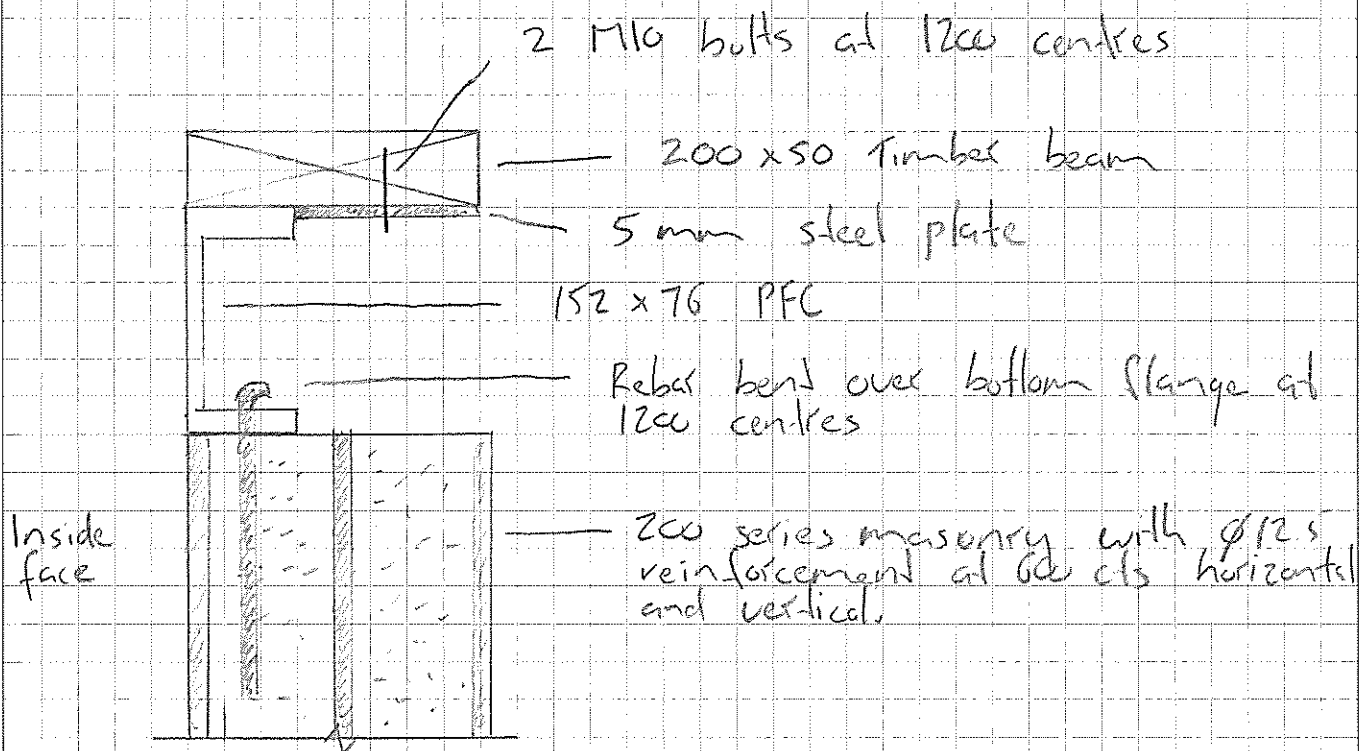 2 M10 bolts at 1200 centres
200 x 50 Timber beam
5 mm steel plate
152 x 76 PFC
Rebar bend over bottom flange at
1200 centres
Inside
face
200 series masonry with ø12s
reinforcement at 600 cts horizontal
and vertical.